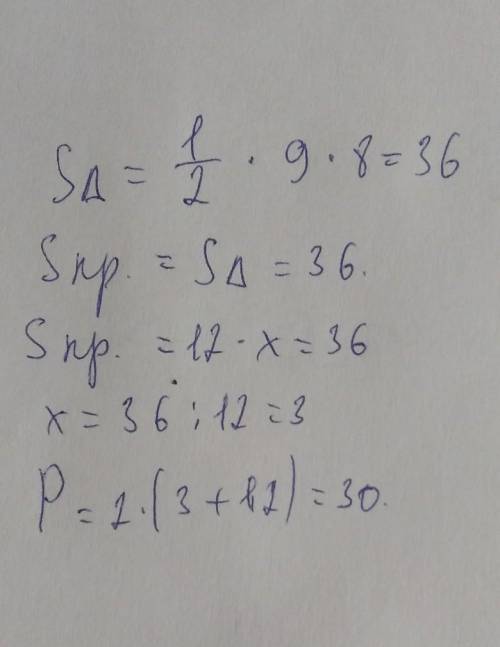 S∆ = 1/2 · 9 · 8 = 36
Sпр. = S∆ = 36.
Sпр. = 12 · x = 36
x = 36 : 12 = 3
P = 2 · (3 + 12) = 30.